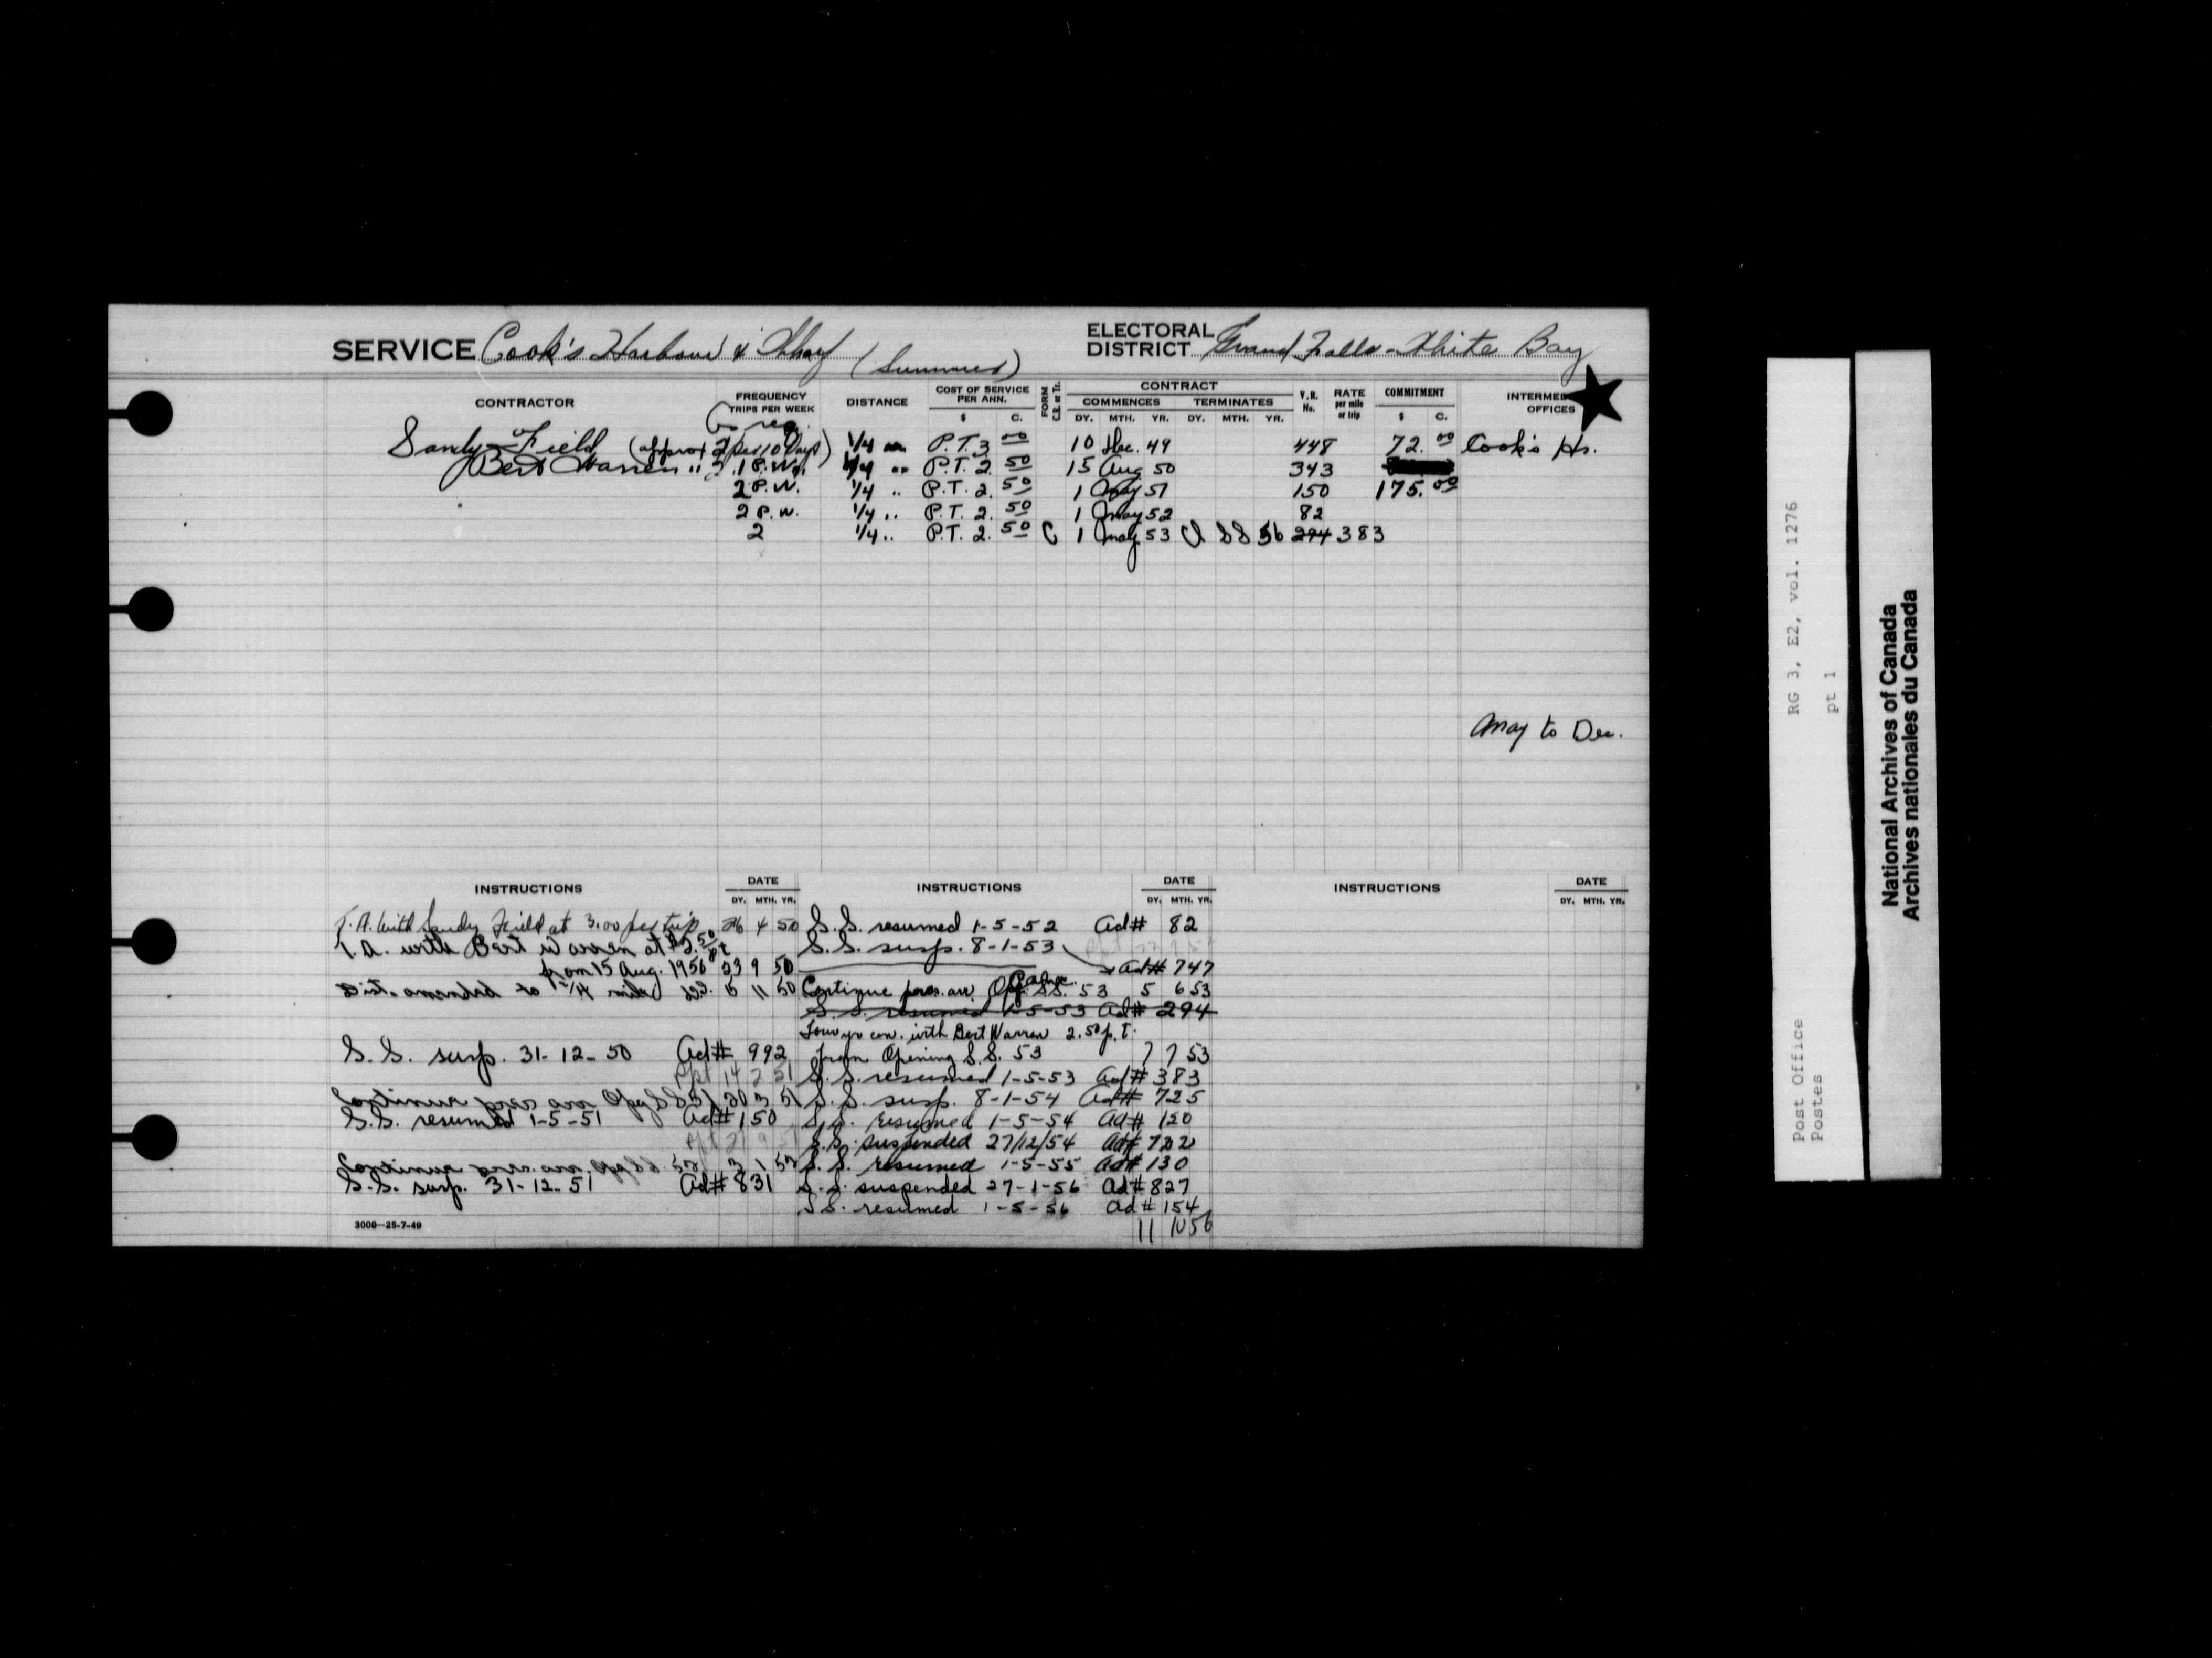 SERVICE Cook's Harbour & Wharf (Summer)
ELECTORAL DISTRICT Grand Falls - White Bay
CONTRACTOR FREQUENCY TRIPS PER WEEK DISTANCE COST OF SERVICE PER ANN. $ C. FORM C.R. or Tr. CONTRACT COMMENCES DY. MTH. YR. TERMINATES DY. MTH. YR. V.R. No. RATE per mile or trip COMMITMENT $ C. INTERMED OFFICES
as req.
Sandy Field (approx 2 per 10 days) 1/4 P.T. 3 00 10 Dec. 49 448 72.00 Cook's Hr.
Bert Warren " 1 P.W. 1/4 " P.T. 2.50 15 Aug 50 343
2 P.W. 1/4 " P.T. 2.50 1 May 51 150 175.00
2 P.W. 1/4 " P.T. 2.50 1 May 52 82
2 1/4 " P.T. 2.50 C 1 May 53 Cl SS 56 294 383
May to Dec.
INSTRUCTIONS DATE DY. MTH. YR.
T.A. with Sandy Field at 3.00 per trip 26 4 50
T.A. with Bert Warren at $2.50 pt
from 15 Aug. 1950 23 9 50
Dist. amended to 1/4 mile 15 11 50
S.S. susp. 31-12-50 Ad# 992
Rpt 14 2 51
Continue pres arr Opg SS 51 20 3 51
S.S. resumed 1-5-51 Ad# 150
Continue pres. arr. Opg SS 52 3 1 52
S.S. susp. 31-12-51 Ad# 831
3000-25-7-49
INSTRUCTIONS DATE DY. MTH. YR.
S.S. resumed 1-5-52 Ad# 82
S.S. susp. 8-1-53
Ad# 747
Continue pres. arr. Opg SS. 53 5 6 53
S.S. resumed 1-5-53 Ad# 294
Four yr con. with Bert Warren 2.50 p.t.
from Opening S.S. 53 7 7 53
S.S. resumed 1-5-53 Ad# 383
S.S. susp. 8-1-54 Ad# 725
S.S. resumed 1-5-54 Ad# 120
S.S. suspended 27/12/54 Ad# 722
S.S. resumed 1-5-55 Ad# 130
S.S. suspended 27-1-56 Ad# 827
S.S. resumed 1-5-56 Ad# 154
11 10 56
INSTRUCTIONS DATE DY. MTH. YR.
RG 3, E2, vol. 1276
pt 1
Post Office
Postes
National Archives of Canada
Archives nationales du Canada